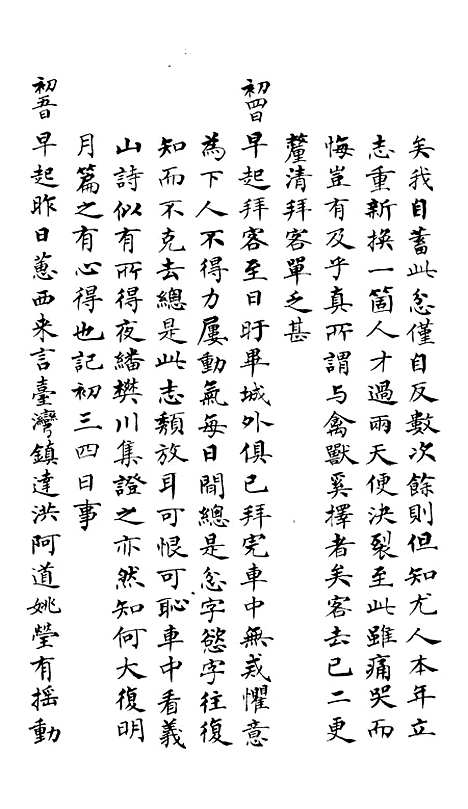 矣我自蓄此忿僅自反數次餘則但知尤人本年立
志重新換一箇人才過兩天便決裂至此雖痛哭而
悔豈有及乎真所謂与禽獸奚擇者矣客去已二更
釐清拜客單乏甚
初四日早起拜客至日旰畢城外俱已拜完車中無戒懼意
為下人不得力屢動氣每日間總是忿字慾字往復
知而不克去總是此志頹放耳可恨可恥車中看義
山詩似有所得夜繙樊川集證之亦然知何大復明
月篇之有心得也記初三四日事
初五日早起昨日蕙西来言臺灣鎮達洪阿道姚瑩有搖動